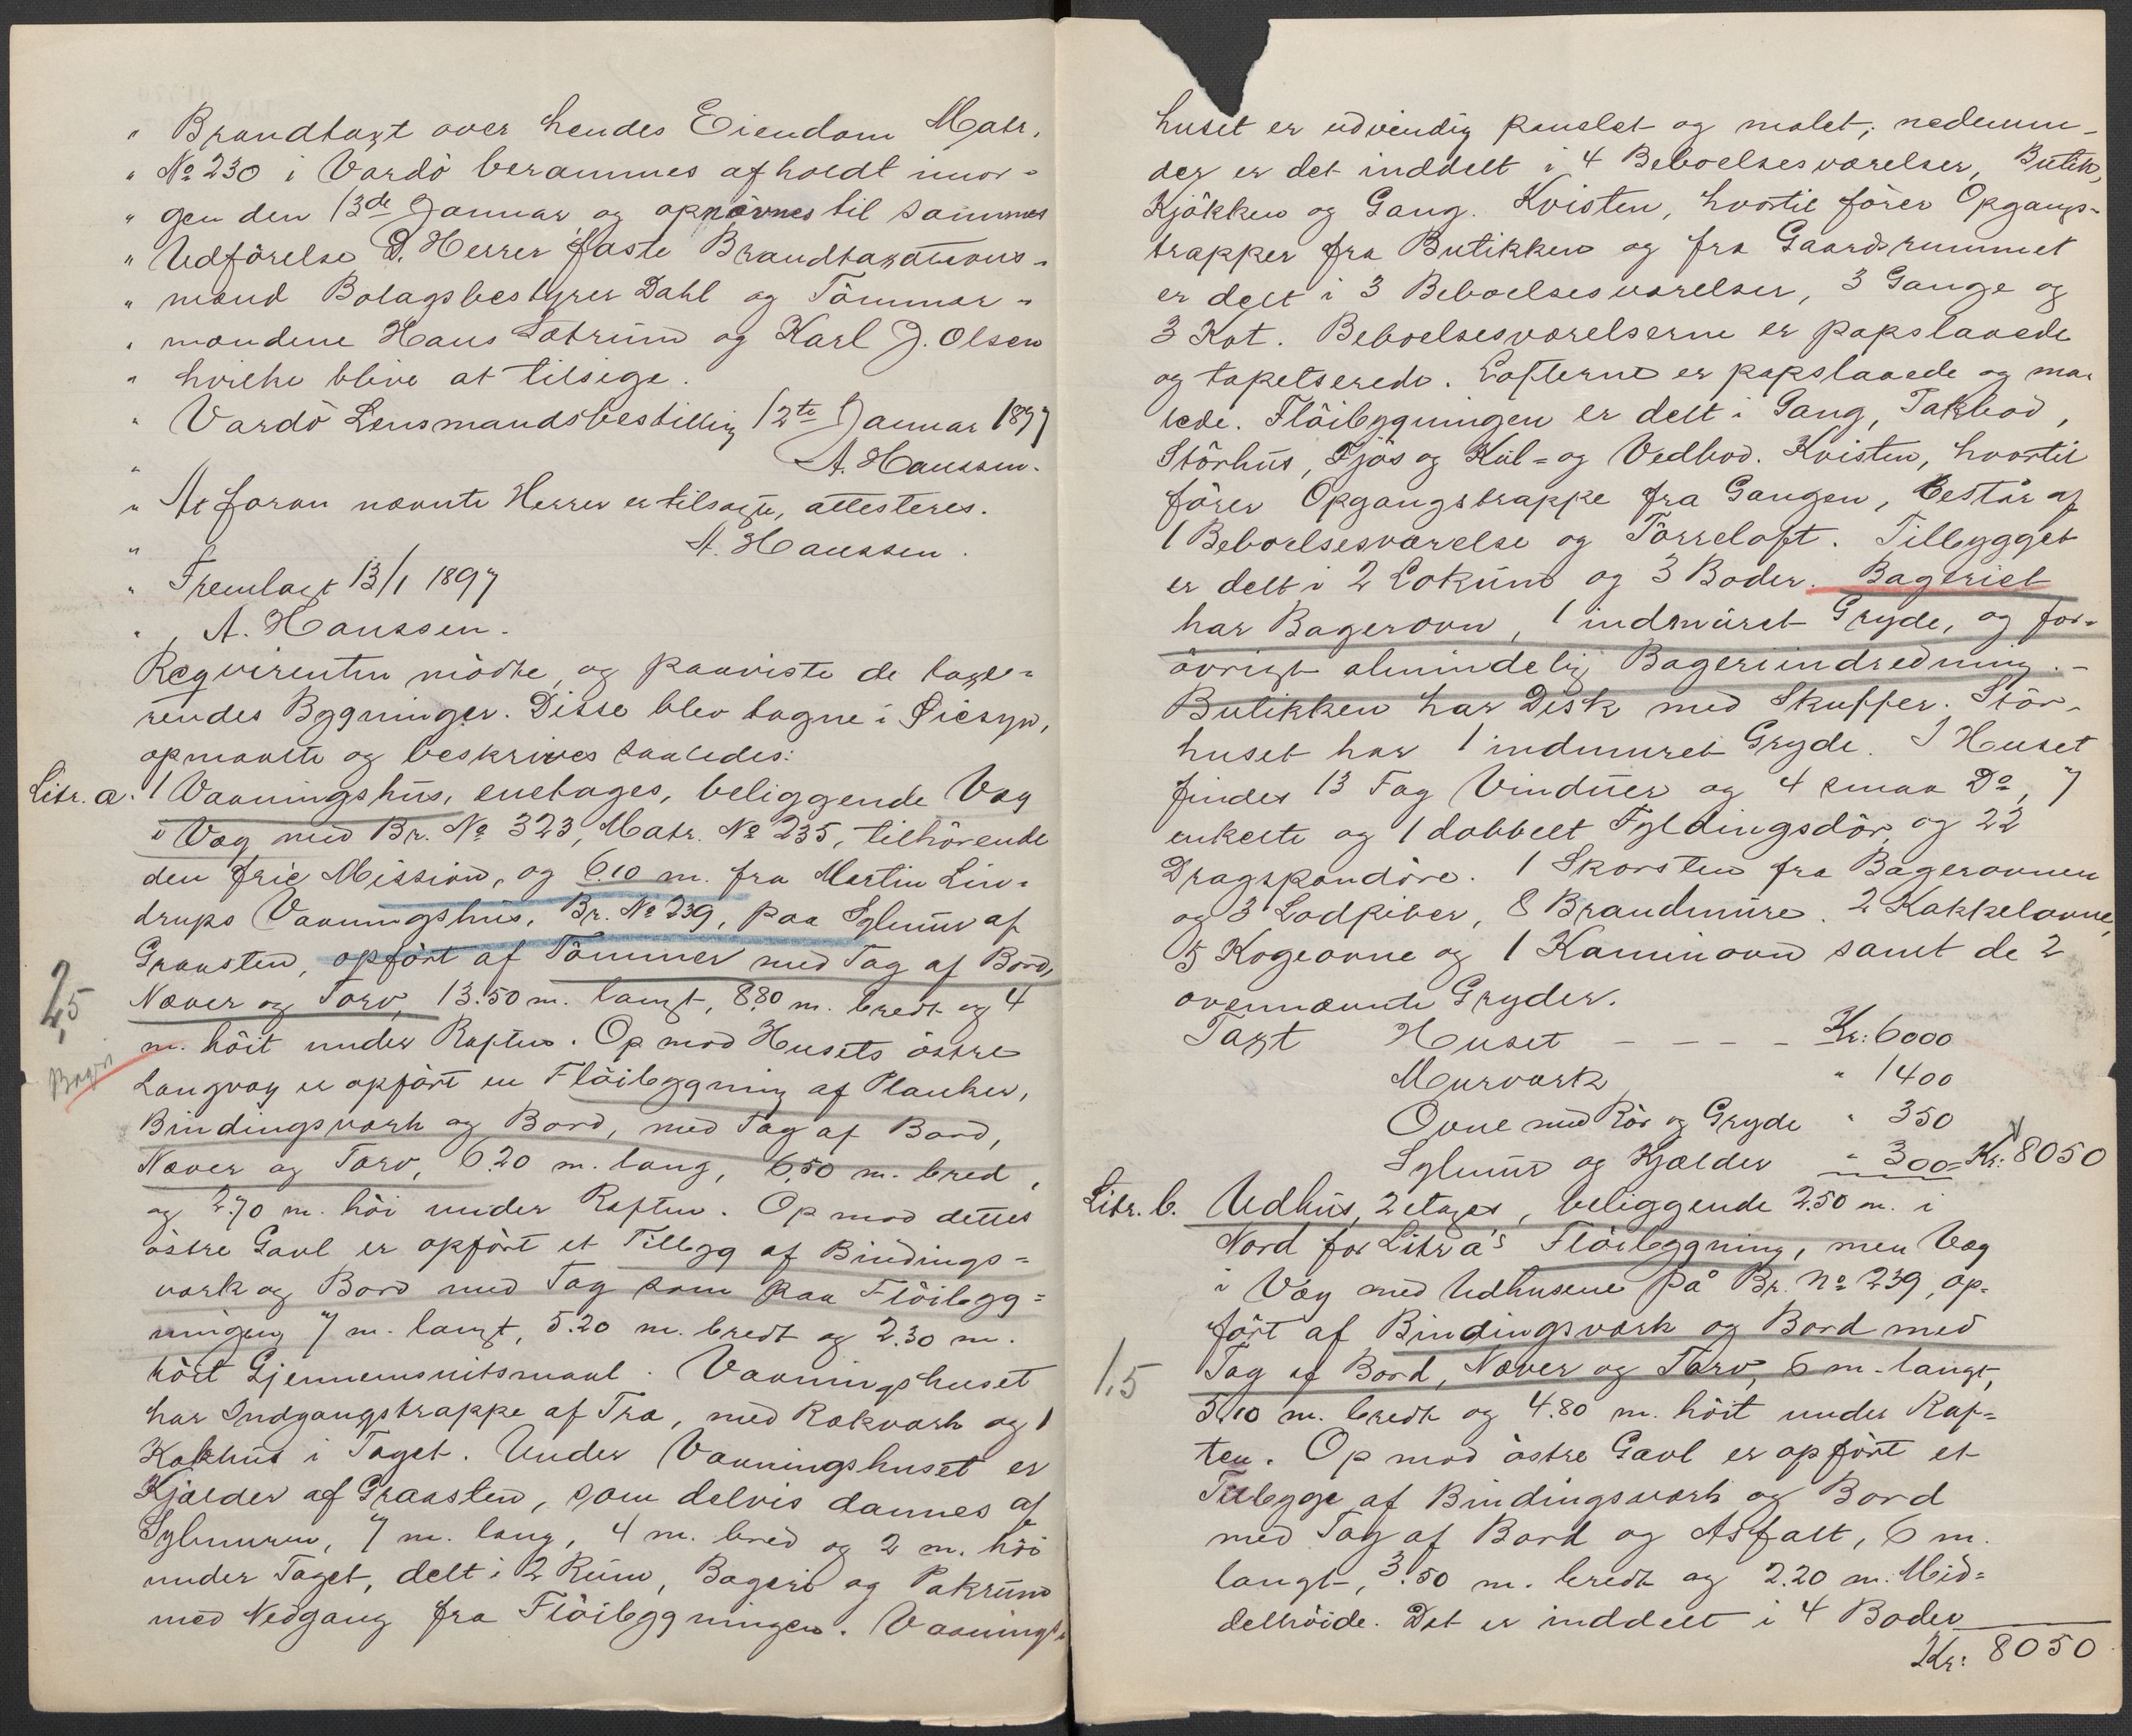 " Brandtaxt over hendes Eiendom Matr.
" No 230 i Vardö berammes afholdt imor-
" gen den 13de Januar, og opnævnes til sammes
" Udförelse D. Herrer faste Brandtaxations-
" mænd Bolagsbestyrer Dahl og Tömmer-
" mændene Hans Sætrum og Karl J. Olsen
" hvilke blive at tilsige.
" Vardö Lensmandsbestilling 12te Januar 1897
" A. Hanssen.
" At foran nævnte Herrer er tilsagte, attesteres.
" A. Hanssen.
" Fremlagt 13/1 1897
" A. Hanssen.
Reqvirenten mödte, og paaviste de taxe-
rendes Bygninger. Disse blev tagne i Öiesyn,
opmaalte og beskrives saaledes:
Litr. a. 1 Vaaningshus, enetages, beliggende Væg
i Væg med Br. No 323, Matr. No 235, tilhörende
den frie Mission, og 6.10 m. fra Martin Lin-
drups Vaaningshus, Br. No 239, paa Sylmur af
Graasten, opfört af Tömmer med Tag af Bord,
2,5 Næver og Torv, 13.50 m. langt, 8.80 m. bredt og 4
m. höit under Raften. Op mod Husets östre
Langvæg er opfört en Flöibygning af Planker,
Bindingsværk og Bord, med Tag af Bord,
Næver og Torv, 6.20 m. lang, 6.50 m. bred,
og 2.70 m. höi under Raften. Op mod dettes
östre Gavl er opfört et Tilbyg af Bindings-
værk og Bord med Tag som paa Flöibyg-
ningen 7 m. langt, 5.20 m. bredt og 2.30 m.
höit Gjennemsnitsmaal. Vaaningshuset
har Indgangstrappe af Træ, med Rækværk og 1
Kakhus i Taget. Under Vaaningshuset er
Kjælder af Graasten, som delvis dannes af
Sylmuren, 7 m. lang, 4 m. bred og 2 m. höi
under Taget, delt i 2 Rum, Bageri og Pakrum
med Nedgang fra Flöibygningen. Vaanings-
huset er udvendig panelet og malet; nedenun-
der er det inddelt i 4 Beboelsesværelser, Butik,
Kjökken og Gang. Kvisten, hvortil förer Opgangs-
trapper fra Butikken og fra Gaardsrummet
er delt i 3 Beboelsesværelser, 3 Gange og
3 Kot. Beboelsesværelserne er papslaaede
og tapetserede. Lofterne er papslaaede og ma-
lede. Flöibygningen er delt i Gang, Takbod,
Störhus, Fjös og Kul- og Vedbod. Kvisten, hvortil
förer Opgangstrappe fra Gangen, består af
1 Beboelsesværelse og Törreloft. Tilbygget
er delt i 2 Lokum og 3 Boder. Bageriet
har Bagerovn, 1 indmuret Gryde, og for-
övrigt almindelig Bageriindredning. -
Butikken har Disk med Skuffer. Stör-
huset har 1 indmuret Gryde. I Huset
findes 13 Fag Vinduer og 4 smaa Do, 7
enkelte og 1 dobbelt Fyldingsdör og 22
Dragspondöre. 1 Skorsten fra Bagerovnen
og 3 Lodpiber, 8 Brandmure. 2 Kakkelovne,
5 Kogeovne og 1 Kaminovn samt de 2
ovennævnte Gryder.
Taxt Huset - - - - Kr: 6000
Murværk " 1400
Ovne med Rör og Gryde " 350
Sylmur og Kjælder " 300= Kr: 8050
Litr. b. Udhus, 2 etages, beliggende 2.50 m. i
Nord for Litr a's Flöibygning, men Væg
i Væg med Udhusene på Br. No 239, op-
fört af Bindingsværk og Bord med
1,5 Tag af Bord, Næver og Torv, 6 m. langt,
5.10 m. bredt og 4.80 m. höit under Raf-
ten. Op mod östre Gavl er opfört et
Tilbygge af Bindingsværk og Bord
med Tag af Bord og Asfalt, 6 m.
langt, 3.50 m. bredt og 2.20 m. Mid-
delhöide. Det er inddelt i 4 Boder
Kr: 8050